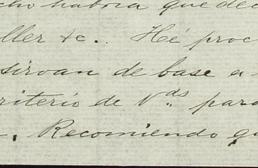 cho habria que dec
ller &c.. Hé proc
sirvan de base a
riterio de Vds para
. Recomiendo qu